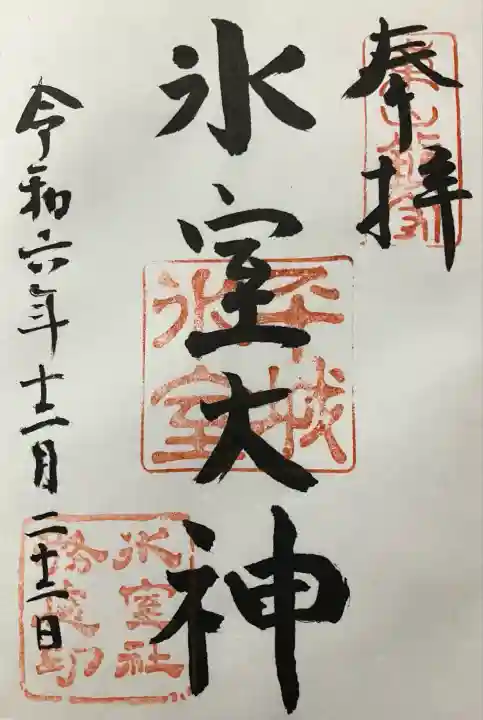 奉拝
氷室大神
平城
氷室
令和六年十二月二十二日
氷室社
務處印